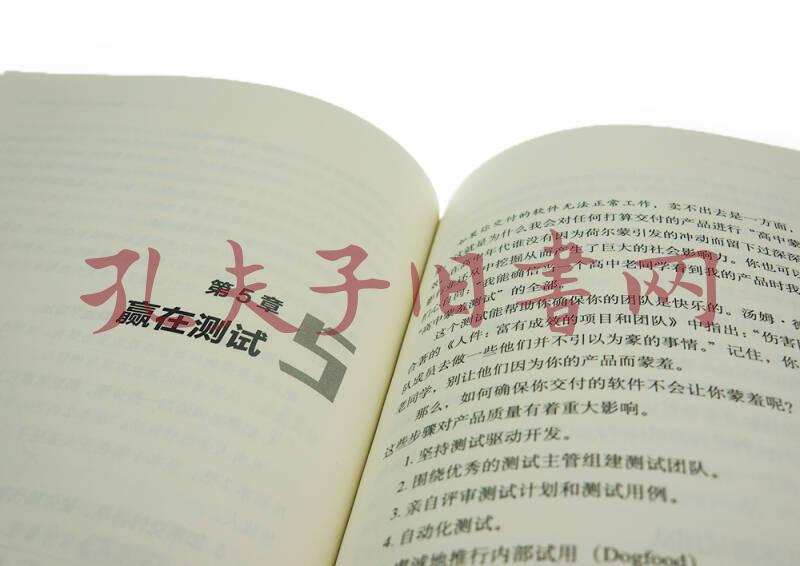 第5章
赢在测试
5
如果你交付的软件无法正常工作，卖不出去是一方面，
就是为什么我会对任何打算交付的产品进行“高中蒙
在高中年代谁没有因为荷尔蒙引发的冲动而留下过深深
还从中挖掘从而产生了巨大的社会影响力。你也可以
自问：我能确信
个高中老同学看到我的产品时我
“高中蒙羞测试”的全部。
这个测试能帮助你确保你的团队是快乐的。汤姆·
合著的《人件：富有成效的项目和团队》中指出：“伤害
队成员去做一些他们并不引以为豪的事情。”记住，你
老同学，别让他们因为你的产品而蒙羞。
那么，如何确保你交付的软件不会让你蒙羞呢？
这些步骤对产品质量有着重大影响。
1. 坚持测试驱动开发。
2. 围绕优秀的测试主管组建测试团队。
3. 亲自评审测试计划和测试用例。
4. 自动化测试。
虔诚地推行内部试用（Dogfood）
孔夫子旧书网